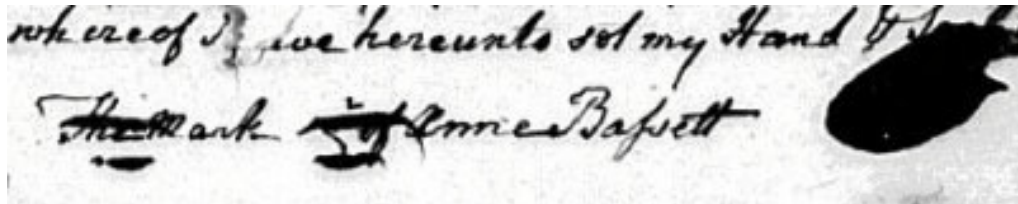 whereof I have hereunto set my Hand & Seal
The Mark of Anne Baſsett